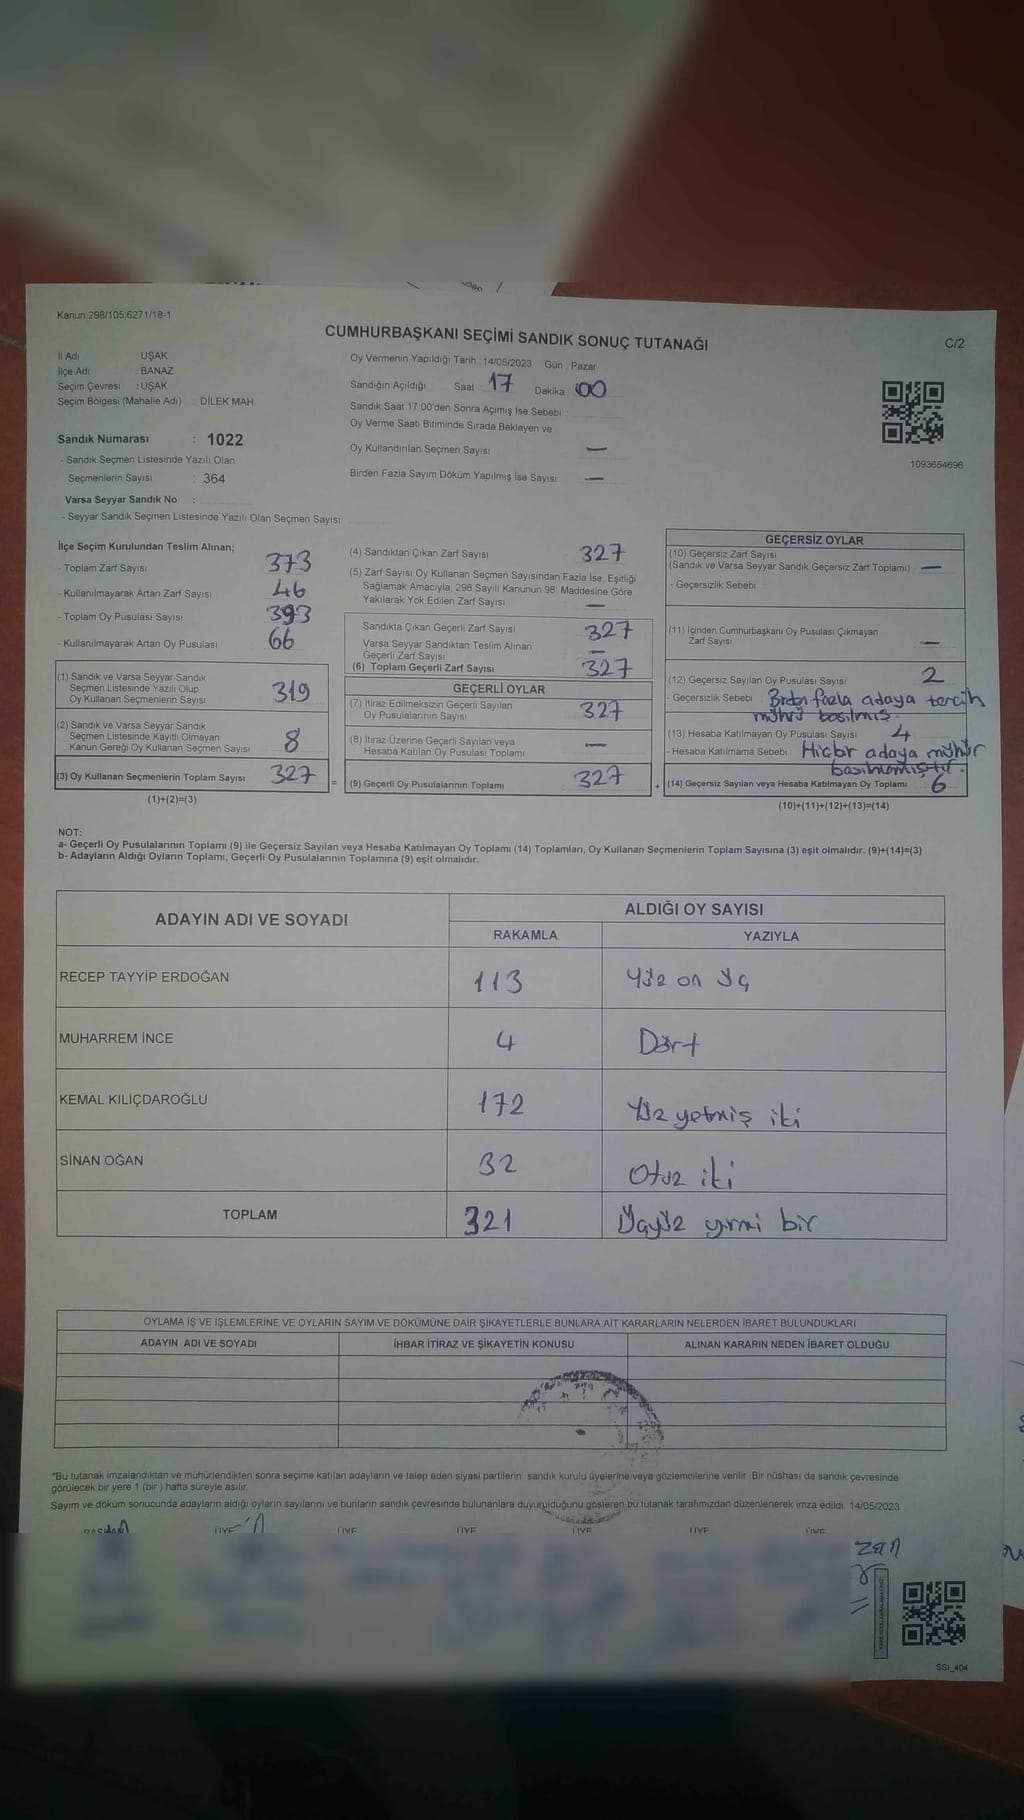 Kanun:298/105,6271/18-1
CUMHURBAŞKANI SEÇİMİ SANDIK SONUÇ TUTANAĞI
C/2
İl Adı : UŞAK
İlçe Adı : BANAZ
Seçim Çevresi : UŞAK
Seçim Bölgesi (Mahalle Adı) : DİLEK MAH.
Sandık Numarası : 1022
- Sandık Seçmen Listesinde Yazılı Olan
Seçmenlerin Sayısı : 364
Varsa Seyyar Sandık No :
- Seyyar Sandık Seçmen Listesinde Yazılı Olan Seçmen Sayısı:
Oy Vermenin Yapıldığı Tarih : 14/05/2023 Gün : Pazar
Sandığın Açıldığı Saat 17 Dakika 00
Sandık Saat 17:00'den Sonra Açımış İse Sebebi
Oy Verme Saati Bitiminde Sırada Bekleyen ve
Oy Kullandırılan Seçmen Sayısı —
Birden Fazla Sayım Döküm Yapılmış İse Sayısı —
1093654696
İlçe Seçim Kurulundan Teslim Alınan;
- Toplam Zarf Sayısı 373
- Kullanılmayarak Artan Zarf Sayısı 46
- Toplam Oy Pusulası Sayısı 393
- Kullanılmayarak Artan Oy Pusulası 66
(1) Sandık ve Varsa Seyyar Sandık
Seçmen Listesinde Yazılı Olup
Oy Kullanan Seçmenlerin Sayısı 319
(2) Sandık ve Varsa Seyyar Sandık
Seçmen Listesinde Kayıtlı Olmayan
Kanun Gereği Oy Kullanan Seçmen Sayısı 8
(3) Oy Kullanan Seçmenlerin Toplam Sayısı 327 =
(1)+(2)=(3)
(4) Sandıktan Çıkan Zarf Sayısı 327
(5) Zarf Sayısı Oy Kullanan Seçmen Sayısından Fazla İse, Eşitliği
Sağlamak Amacıyla; 298 Sayılı Kanunun 98. Maddesine Göre
Yakılarak Yok Edilen Zarf Sayısı —
Sandıkta Çıkan Geçerli Zarf Sayısı 327
Varsa Seyyar Sandıktan Teslim Alınan
Geçerli Zarf Sayısı —
(6) Toplam Geçerli Zarf Sayısı 327
GEÇERLİ OYLAR
(7) İtiraz Edilmeksizin Geçerli Sayılan
Oy Pusulalarının Sayısı 327
(8) İtiraz Üzerine Geçerli Sayılan veya
Hesaba Katılan Oy Pusulası Toplamı —
(9) Geçerli Oy Pusulalarının Toplamı 327 +
GEÇERSİZ OYLAR
(10) Geçersiz Zarf Sayısı
(Sandık ve Varsa Seyyar Sandık Geçersiz Zarf Toplamı) —
- Geçersizlik Sebebi
(11) İçinden Cumhurbaşkanı Oy Pusulası Çıkmayan
Zarf Sayısı —
(12) Geçersiz Sayılan Oy Pusulası Sayısı 2
- Geçersizlik Sebebi Birden fazla adaya tercih
mührü basılmış.
(13) Hesaba Katılmayan Oy Pusulası Sayısı 4
- Hesaba Katılmama Sebebi Hiçbir adaya mühür
basılmamıştır.
(14) Geçersiz Sayılan veya Hesaba Katılmayan Oy Toplamı 6
(10)+(11)+(12)+(13)=(14)
NOT:
a- Geçerli Oy Pusulalarının Toplamı (9) ile Geçersiz Sayılan veya Hesaba Katılmayan Oy Toplamı (14) Toplamları, Oy Kullanan Seçmenlerin Toplam Sayısına (3) eşit olmalıdır. (9)+(14)=(3)
b- Adayların Aldığı Oyların Toplamı, Geçerli Oy Pusulalarının Toplamına (9) eşit olmalıdır.
ADAYIN ADI VE SOYADI ALDIĞI OY SAYISI
RAKAMLA YAZIYLA
RECEP TAYYİP ERDOĞAN 113 Yüz on üç
MUHARREM İNCE 4 Dört
KEMAL KILIÇDAROĞLU 172 Yüz yetmiş iki
SİNAN OĞAN 32 Otuz iki
TOPLAM 321 Üçyüz yirmi bir
OYLAMA İŞ VE İŞLEMLERİNE VE OYLARIN SAYIM VE DÖKÜMÜNE DAİR ŞİKAYETLERLE BUNLARA AİT KARARLARIN NELERDEN İBARET BULUNDUKLARI
ADAYIN ADI VE SOYADI İHBAR İTİRAZ VE ŞİKAYETİN KONUSU ALINAN KARARIN NEDEN İBARET OLDUĞU
*Bu tutanak imzalandıktan ve mühürlendikten sonra seçime katılan adayların ve talep eden siyasi partilerin sandık kurulu üyelerine veya gözlemcilerine verilir. Bir nüshası da sandık çevresinde
görülecek bir yere 1 (bir) hafta süreyle asılır.
Sayım ve döküm sonucunda adayların aldığı oyların sayılarını ve bunların sandık çevresinde bulunanlara duyurulduğunu gösteren bu tutanak tarafımızdan düzenlenerek imza edildi. 14/05/2023
BAŞKAN ÜYE ÜYE ÜYE ÜYE ÜYE ÜYE
SSI_404